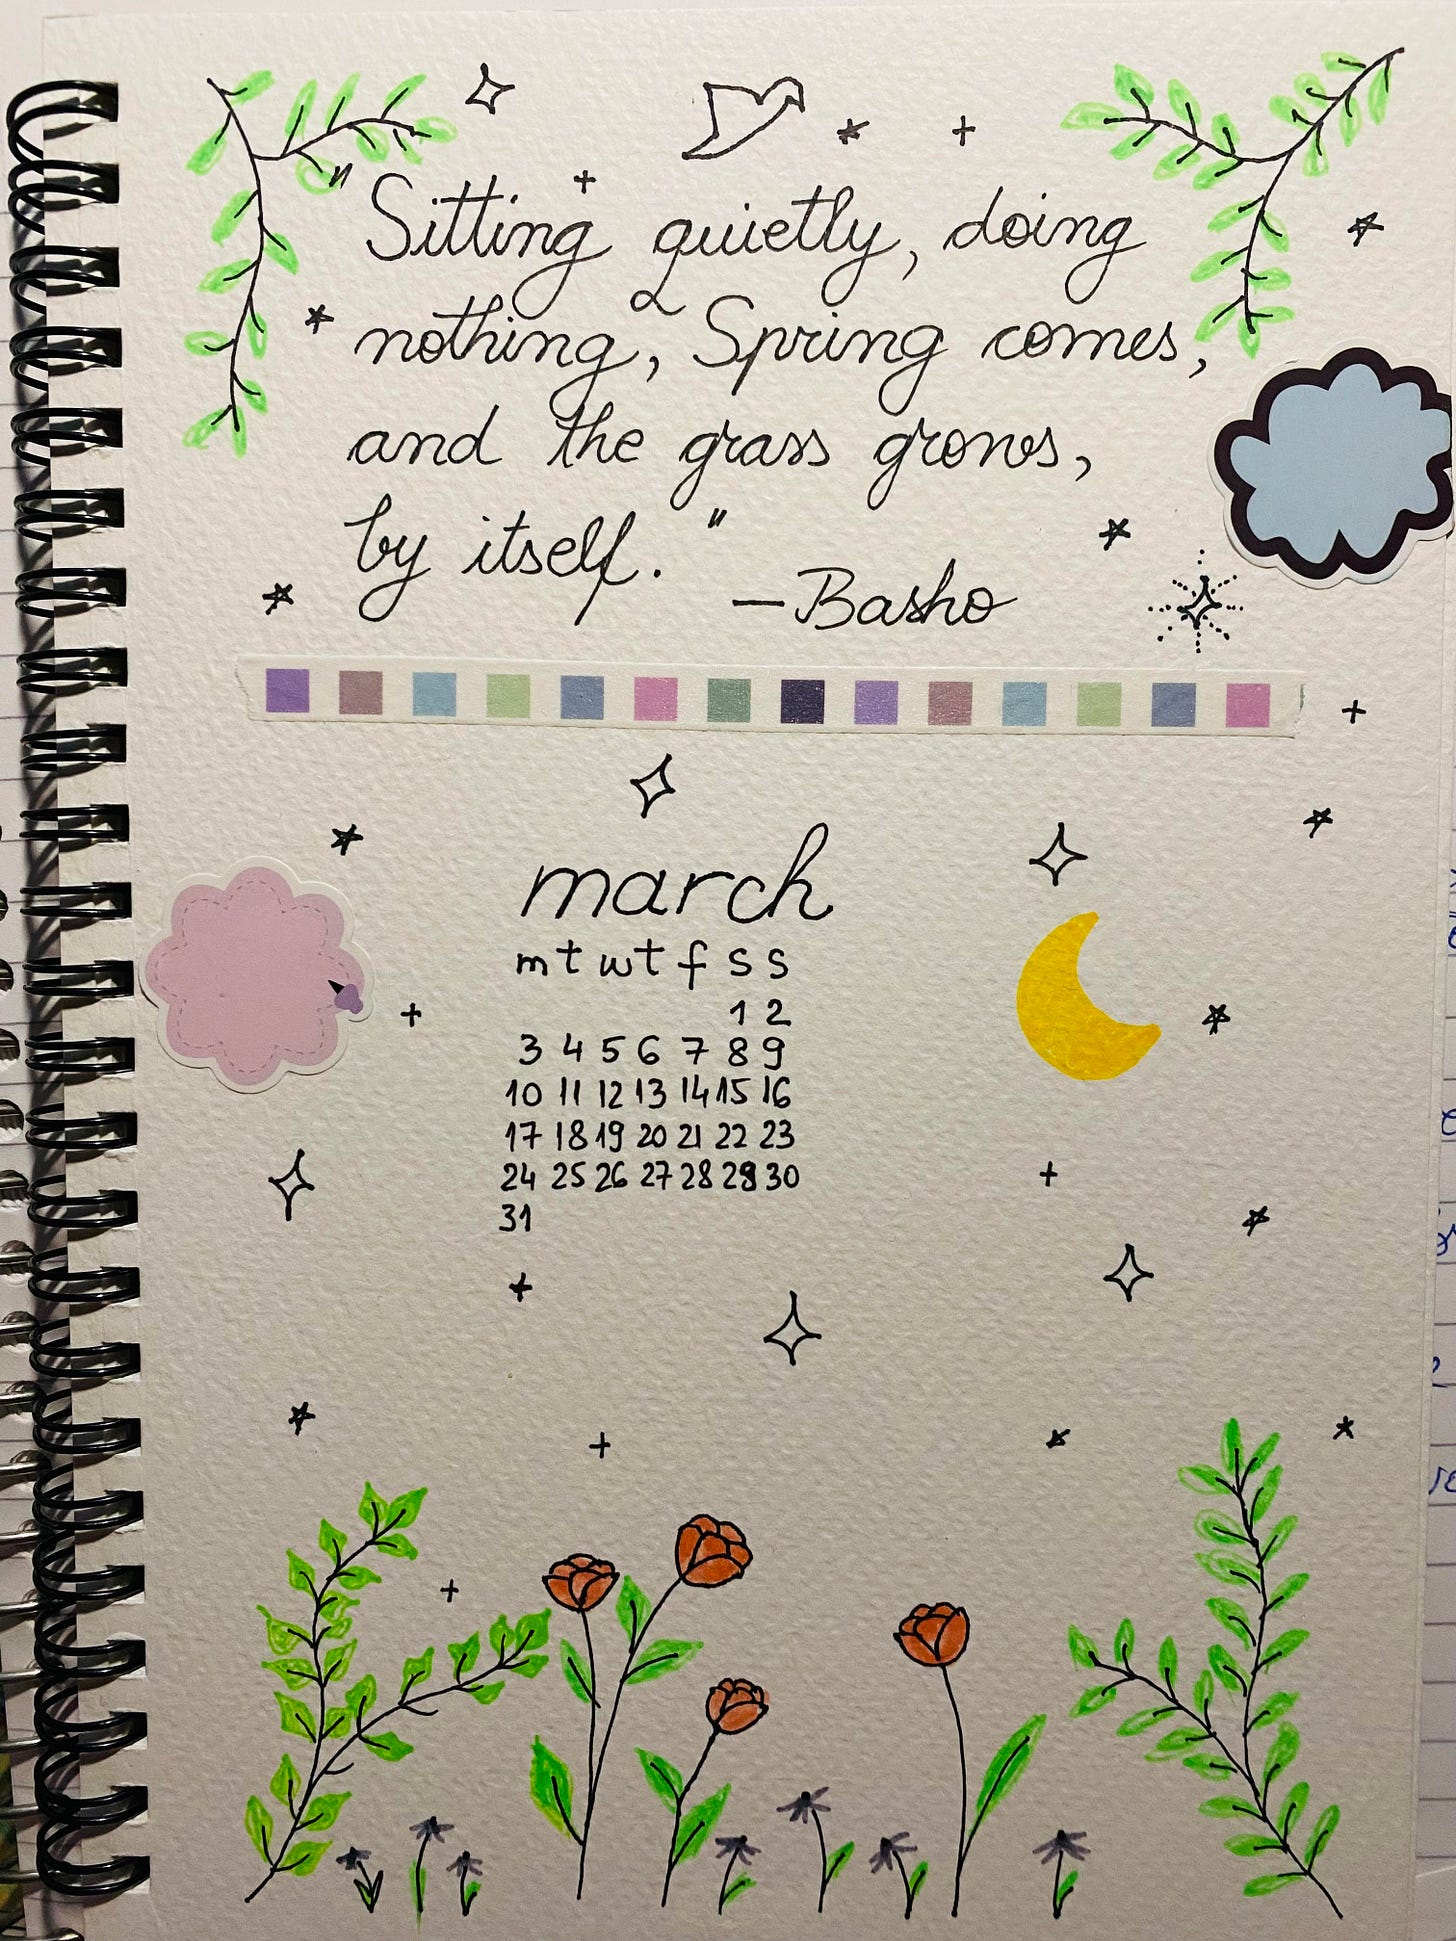 "Sitting quietly, doing
nothing, Spring comes,
and the grass grows,
by itself."
—Basho
march
m t w t f s s
1 2
3 4 5 6 7 8 9
10 11 12 13 14 15 16
17 18 19 20 21 22 23
24 25 26 27 28 29 30
31